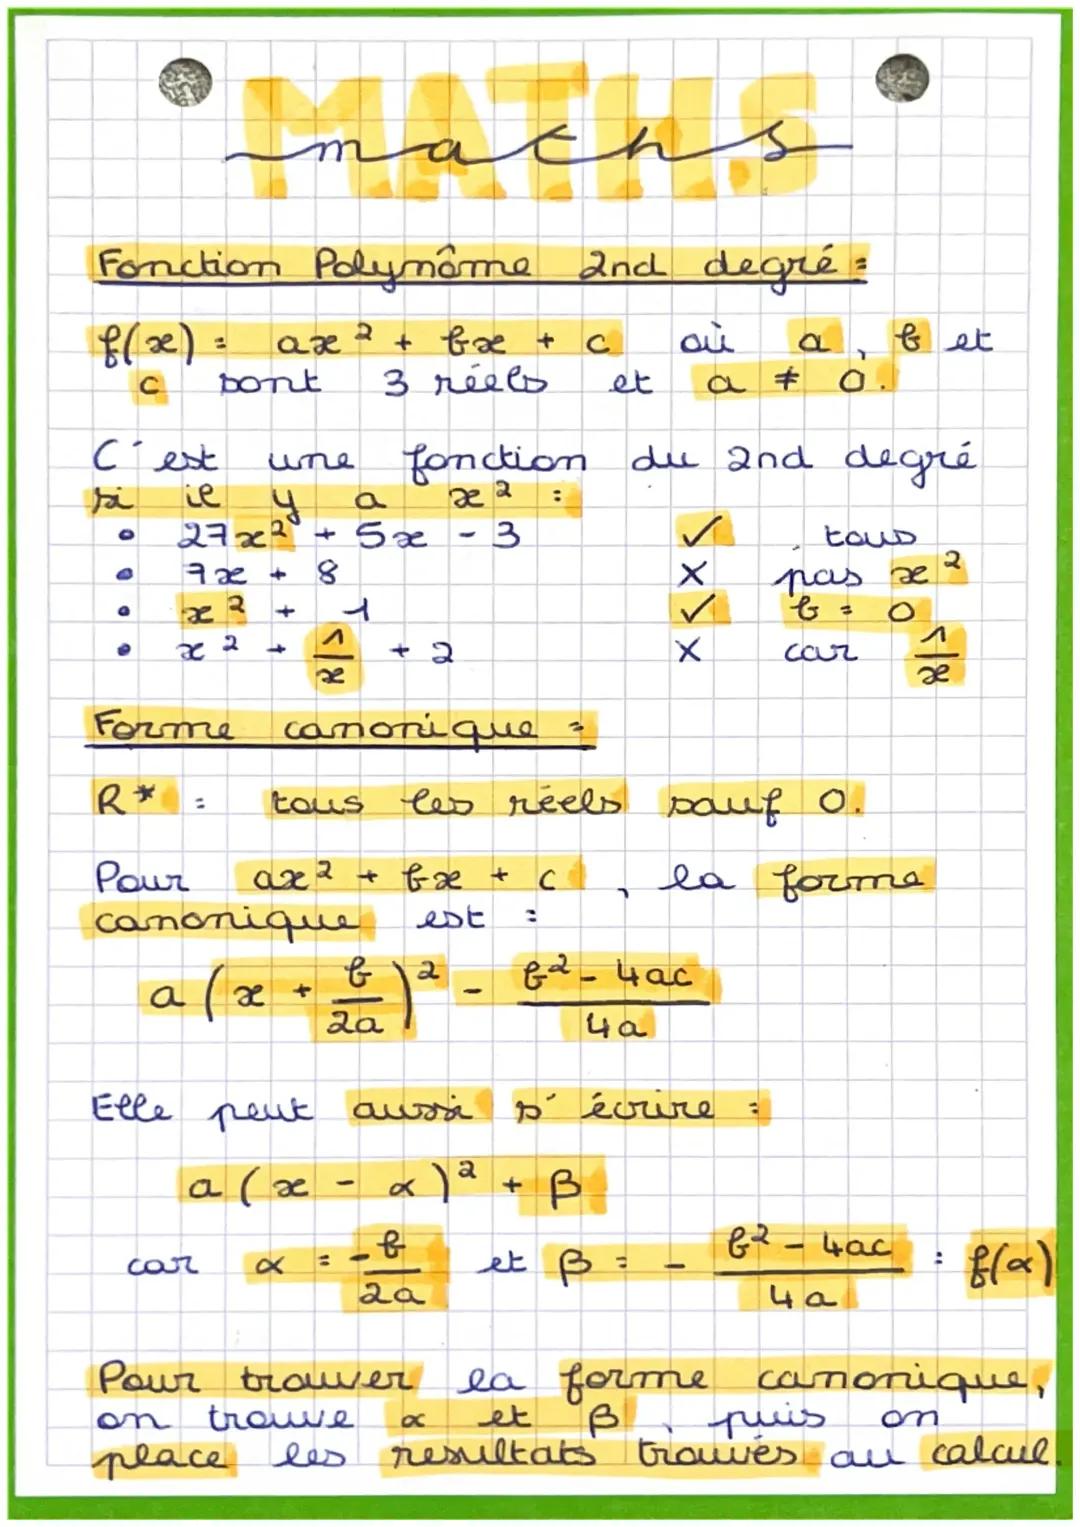 MATHS
maths
Fonction Polynôme 2nd degré :
f(x) = ax² + bx + c où a, b et
c sont 3 réels et a ≠ 0.
C'est une fonction du 2nd degré
si il y a x² :
• 27x² + 5x - 3 ✓ tous
• 7x + 8 X pas x²
• x² + 1 ✓ b = 0
• x² + 1/x + 2 X car 1/x
Forme canonique :
R* : tous les réels sauf 0.
Pour ax² + bx + c, la forme
canonique est :
a(x + b/2a)² - (b² - 4ac)/4a
Elle peut aussi s'écrire :
a(x - α)² + β
car α = -b/2a et β = - (b² - 4ac)/4a = f(α)
Pour trouver la forme canonique,
on trouve α et β, puis on
place les resultats trouvés au calcul.